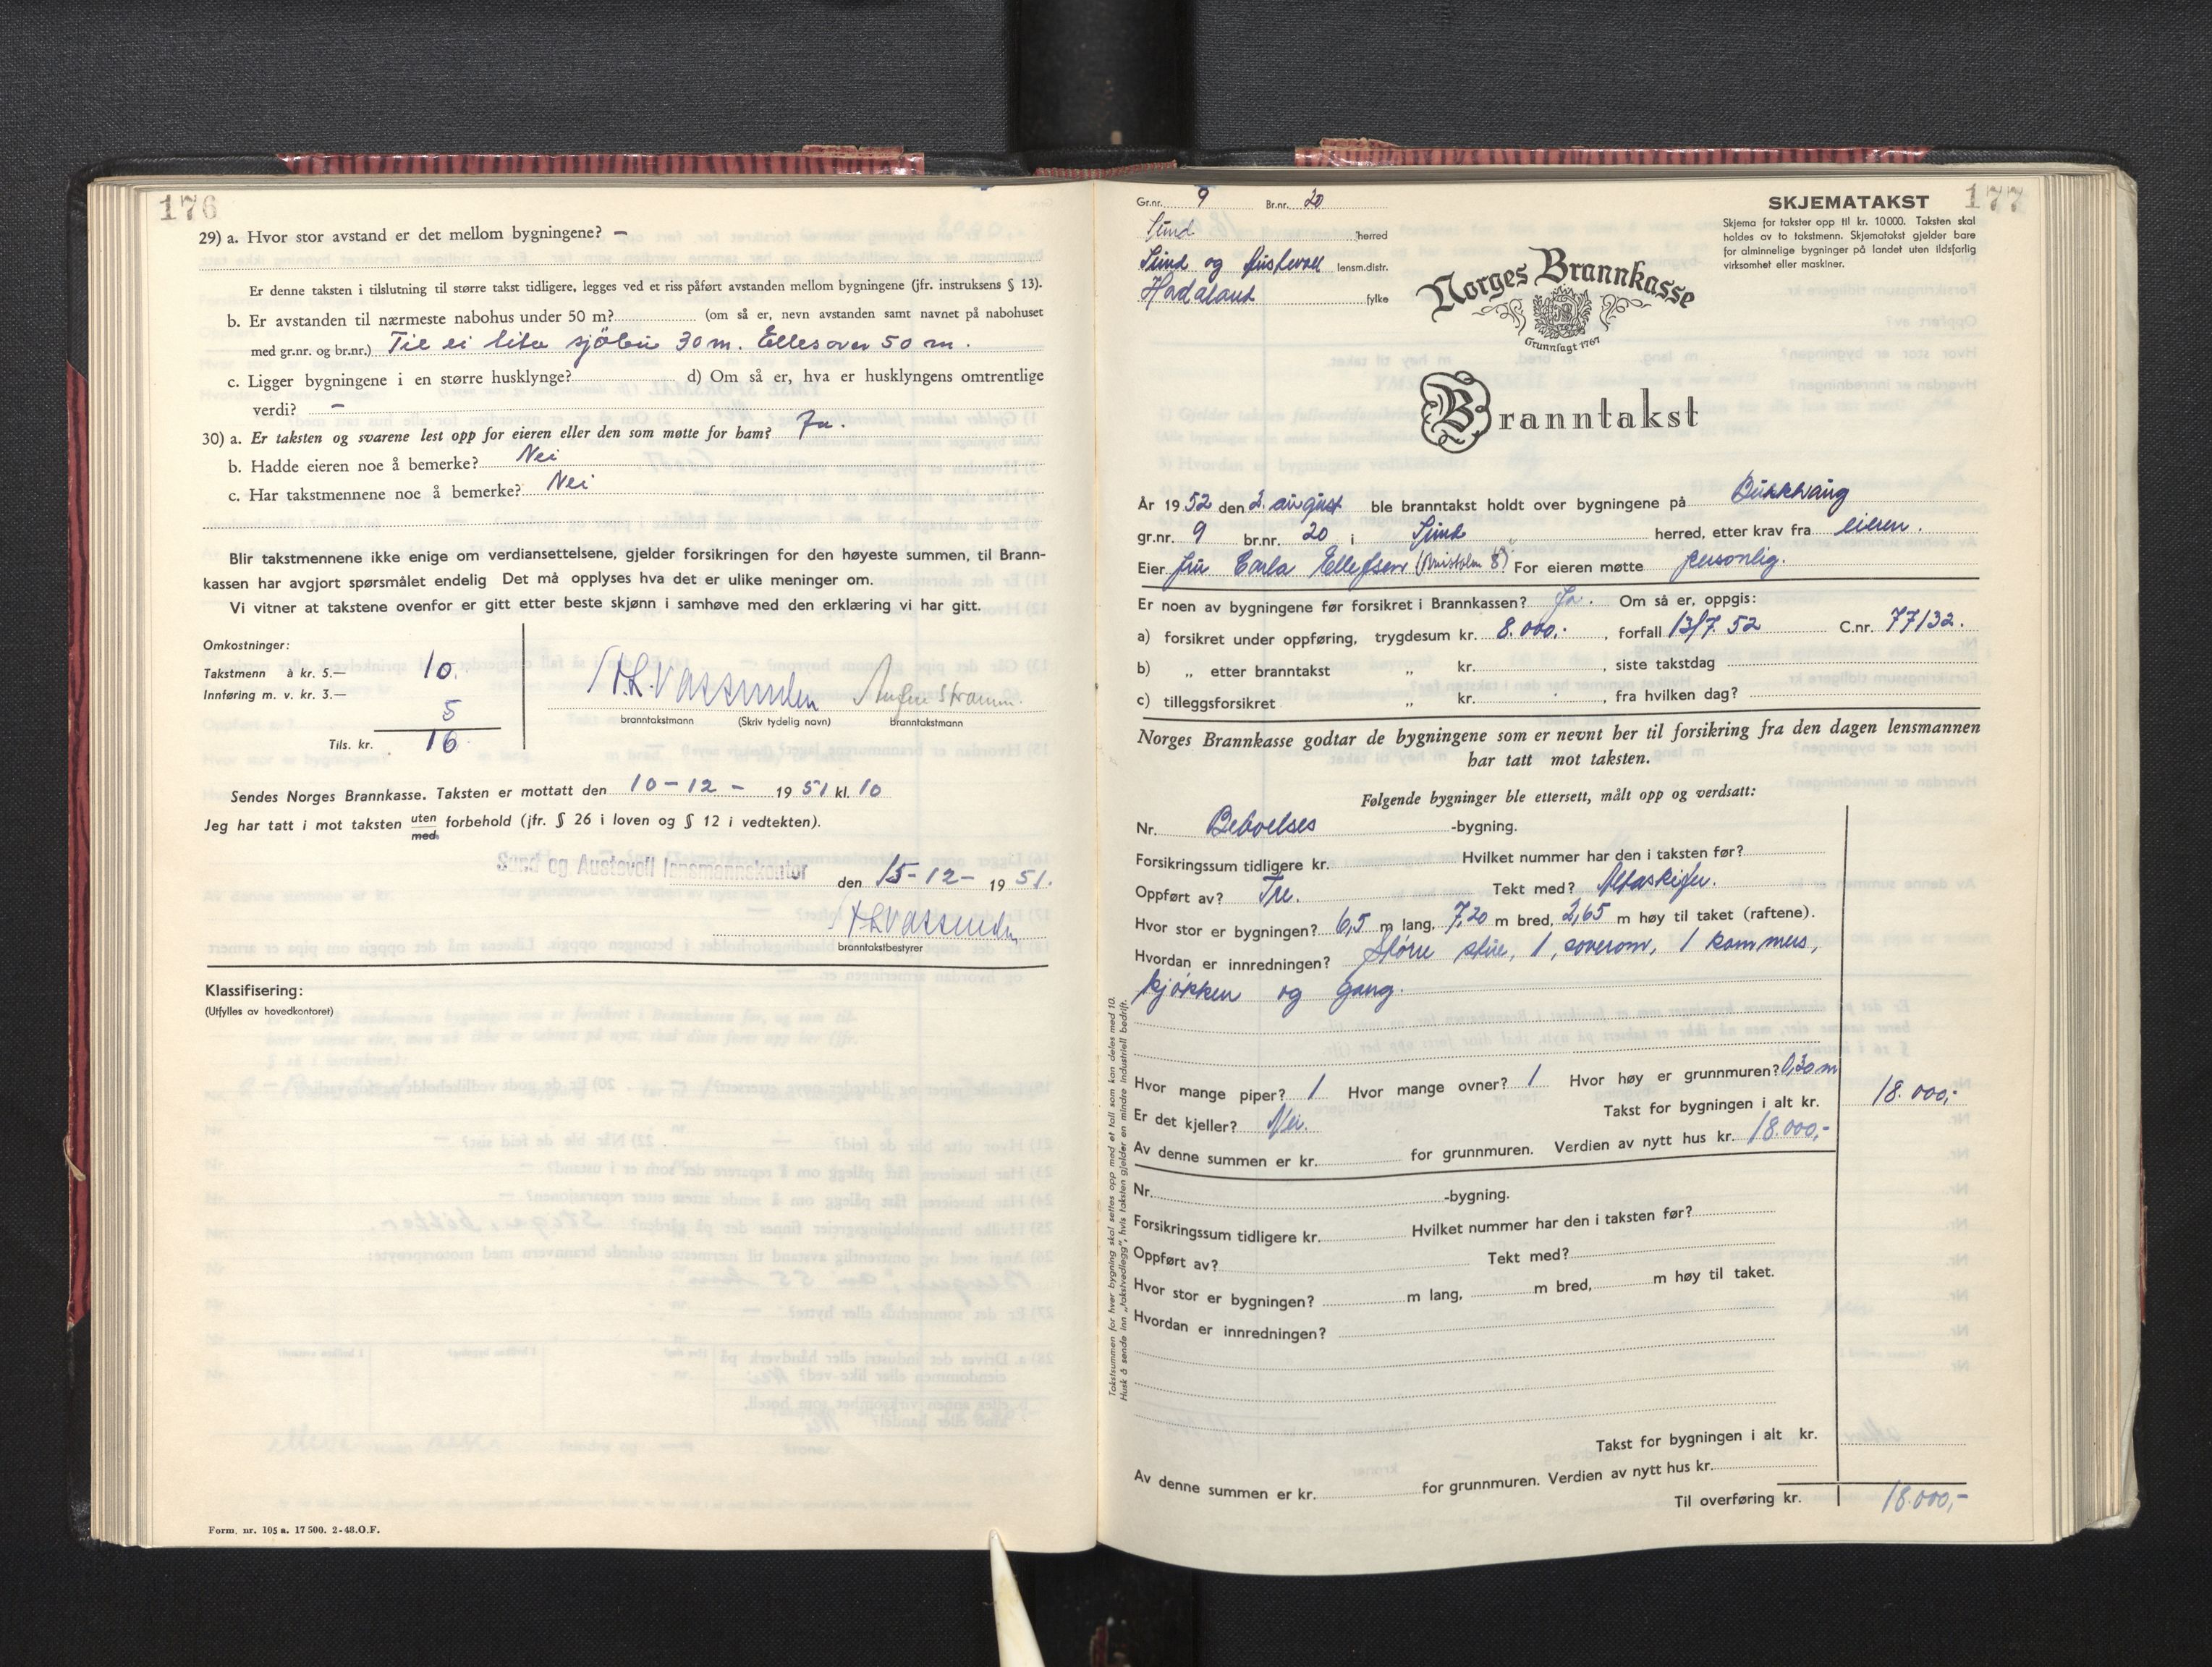 176
29) a. Hvor stor avstand er det mellom bygningene? –
Er denne taksten i tilslutning til større takst tidligere, legges ved et riss påført avstanden mellom bygningene (jfr. instruksens § 13).
b. Er avstanden til nærmeste nabohus under 50 m? (om så er, nevn avstanden samt navnet på nabohuset
med gr.nr. og br.nr.) Til ei lita sjöbu 30 m. Elles over 50 m.
c. Ligger bygningene i en større husklynge? d) Om så er, hva er husklyngens omtrentlige
verdi? –
30) a. Er taksten og svarene lest opp for eieren eller den som møtte for ham? Ja.
b. Hadde eieren noe å bemerke? Nei
c. Har takstmennene noe å bemerke? Nei
Blir takstmennene ikke enige om verdiansettelsene, gjelder forsikringen for den høyeste summen, til Brann-
kassen har avgjort spørsmålet endelig Det må opplyses hva det er ulike meninger om.
Vi vitner at takstene ovenfor er gitt etter beste skjønn i samhøve med den erklæring vi har gitt.
Omkostninger:
Takstmenn à kr. 5.— 10.
Innføring m. v. kr. 3.—
5
Tils. kr. 16
branntakstmann (Skriv tydelig navn) branntakstmann
Sendes Norges Brannkasse. Taksten er mottatt den 10-12- 1951 kl. 10
Jeg har tatt i mot taksten uten
med forbehold (jfr. § 26 i loven og § 12 i vedtekten).
Sund og Austevoll lensmannskontor den 15-12- 1951.
branntakstbestyrer
Klassifisering:
(Utfylles av hovedkontoret)
Form. nr. 105 a. 17500. 2-48.O.F.
177
Gr.nr. 9 Br.nr. 20
Sund herred
Sund og Austevoll lensm.distr.
Hordaland fylke
SKJEMATAKST
Skjema for takster opp til kr. 10000. Taksten skal
holdes av to takstmenn. Skjematakst gjelder bare
for alminnelige bygninger på landet uten ildsfarlig
virksomhet eller maskiner.
Norges Brannkasse
Grunnlagt 1767
Branntakst
År 1952 den 2. august ble branntakst holdt over bygningene på
gr.nr. 9 br.nr. 20 i Sund herred, etter krav fra eieren.
Eier fru Carla Ellefsen For eieren møtte personlig.
Er noen av bygningene før forsikret i Brannkassen? Ja. Om så er, oppgis:
a) forsikret under oppføring, trygdesum kr. 8.000,- , forfall 13/7. 52 C.nr. 77132.
b) „ etter branntakst „ kr. , siste takstdag
c) tilleggsforsikret „ kr. , fra hvilken dag?
Norges Brannkasse godtar de bygningene som er nevnt her til forsikring fra den dagen lensmannen
har tatt mot taksten.
Følgende bygninger ble ettersett, målt opp og verdsatt:
Nr. Beboelses -bygning.
Forsikringssum tidligere kr. Hvilket nummer har den i taksten før?
Oppført av? Tre. Tekt med? Altaskifer.
Hvor stor er bygningen? 6,5 m lang, 7,20 m bred, 2,65 m høy til taket (raftene).
Hvordan er innredningen? Større stue, 1 soverom, 1 kammers,
kjøkken og gang.
Hvor mange piper? 1 Hvor mange ovner? 1 Hvor høy er grunnmuren? 0,30 m
Er det kjeller? Nei. Takst for bygningen i alt kr. 18.000,-
Av denne summen er kr. for grunnmuren. Verdien av nytt hus kr. 18.000,-
Nr. -bygning.
Forsikringssum tidligere kr. Hvilket nummer har den i taksten før?
Oppført av? Tekt med?
Hvor stor er bygningen? m lang, m bred, m høy til taket.
Hvordan er innredningen?
Takst for bygningen i alt kr.
Av denne summen er kr. for grunnmuren. Verdien av nytt hus kr.
Til overføring kr. 18.000,-
Takstsummen for hver bygning skal settes opp med et tall som kan deles med 10.
Husk å sende inn „takstvedlegg", hvis taksten gjelder en mindre industriell bedrift.